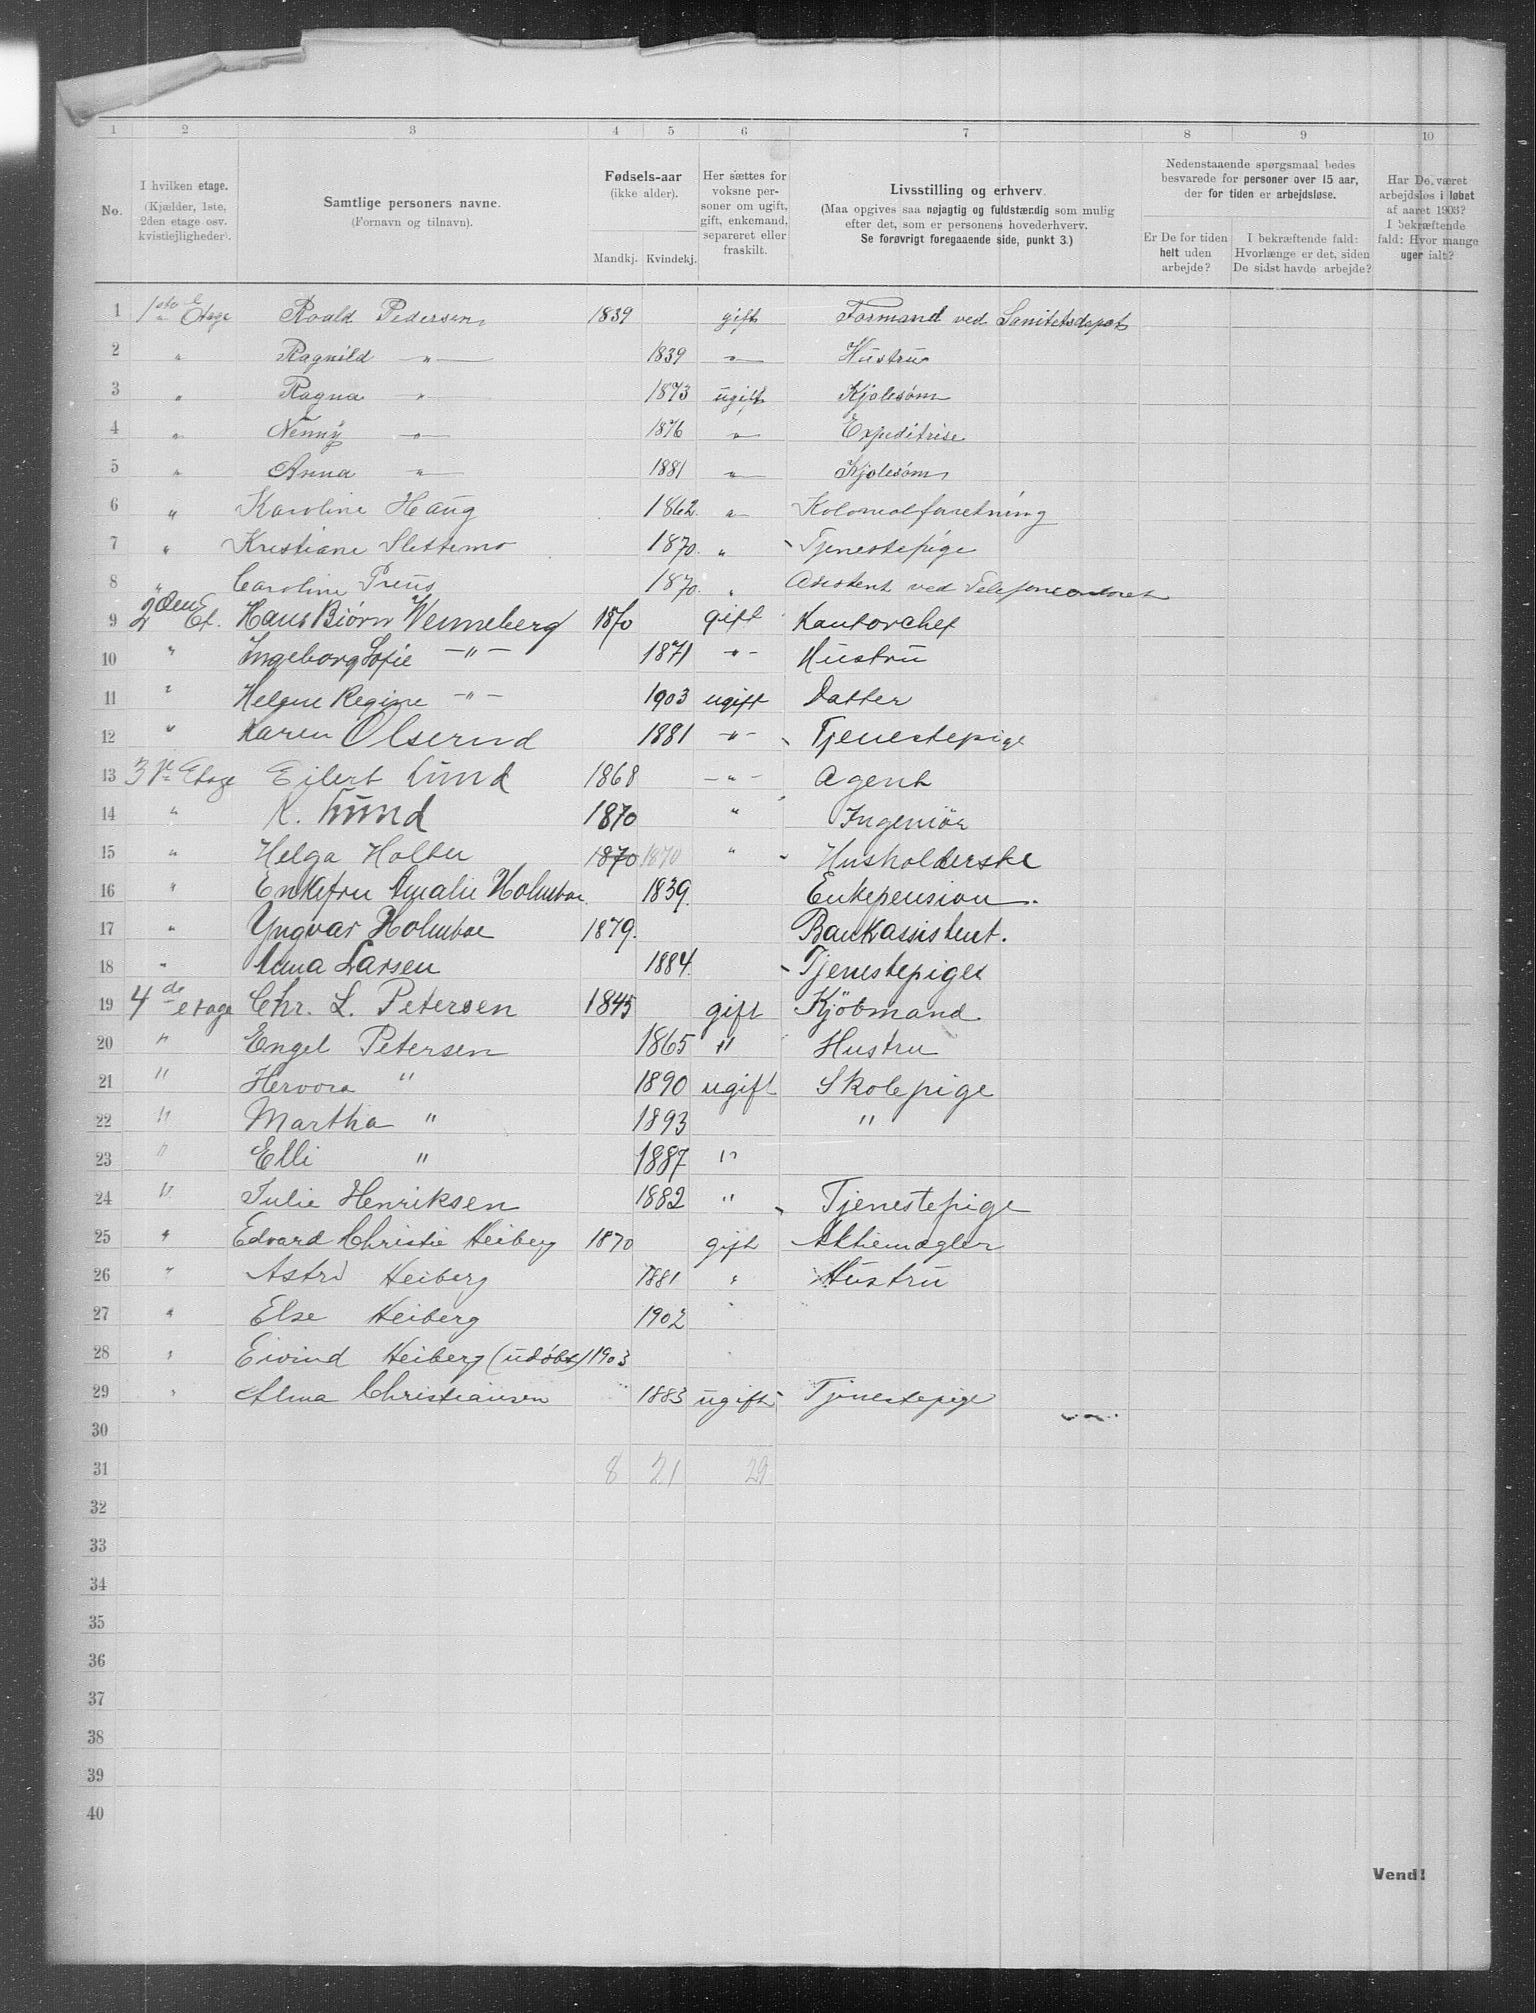 1 2 3 4 5 6 7 8 9 10
No.
I hvilken etage. (Kjælder, 1ste, 2den etage osv. kvistlejligheder).
Samtlige personers navne. (Fornavn og tilnavn).
Fødsels-aar (ikke alder).
Mandkj. Kvindekj.
Her sættes for voksne personer om ugift, gift, enkemand, separeret eller fraskilt.
Livsstilling og erhverv.
(Maa opgives saa nøjagtig og fuldstændig som mulig efter det, som er personens hovederhverv. Se forøvrigt foregaaende side, punkt 3.)
Nedenstaaende spørgsmaal bedes besvarede for personer over 15 aar, der for tiden er arbejdsløse.
Er De for tiden helt uden arbejde?
I bekræftende fald: Hvorlænge er det, siden De sidst havde arbejde?
Har De været arbejdsløs i løbet af aaret 1903? I bekræftende fald: Hvor mange uger ialt?
1 1ste Etage Roald Pedersen 1839 gift Formand ved Sanitetsdepot
2 " Ragnild " 1839 " Hustru
3 " Ragna " 1873 ugift Kjolesøm
4 " Nenny " 1876 " Expeditrise
5 " Anna " 1881 " Kjolesøm
6 " Karoline Haug 1862 " Kolonialforretning
7 " Kristiane Slettemo 1870 " Tjenestepige
8 " Caroline Preus 1870 " Assistent ved Telefoncontoret
9 2den Et. Hans Biørn Wenneberg 1870 gift Kontorchef
10 " Ingeborg Sofie " 1871 " Hustru
11 " Helene Regine " 1903 ugift Datter
12 " Karen Olserud 1881 " Tjenestepige
13 3je Etage Eilert Lund 1868 " Agent
14 " K. Lund 1870 " Ingeniør
15 " Helga Holter 1870 1870 " Husholderske
16 " Enkefru Amalie Holmboe 1839. Enkepension.
17 " Yngvar Holmboe 1879. Bankassistent.
18 " Anna Larsen 1884. Tjenestepige
19 4de etage Chr. L. Petersen 1845 gift Kjöbmand
20 " Engel Petersen 1865 " Hustru
21 " Hervora " 1890 ugift Skolepige
22 " Martha " 1893 "
23 " Elli " 1887 "
24 " Julie Henriksen 1882 " Tjenestepige
25 " Edvard Christie Heiberg 1870 gift Aktiemægler
26 " Astri Heiberg 1881 " Hustru
27 " Else Heiberg 1902 "
28 " Eivind Heiberg (udøbt) 1903 "
29 " Alma Christiansen 1883 ugift Tjenestepige
30
31 8 21 29
32
33
34
35
36
37
38
39
40
Vend!